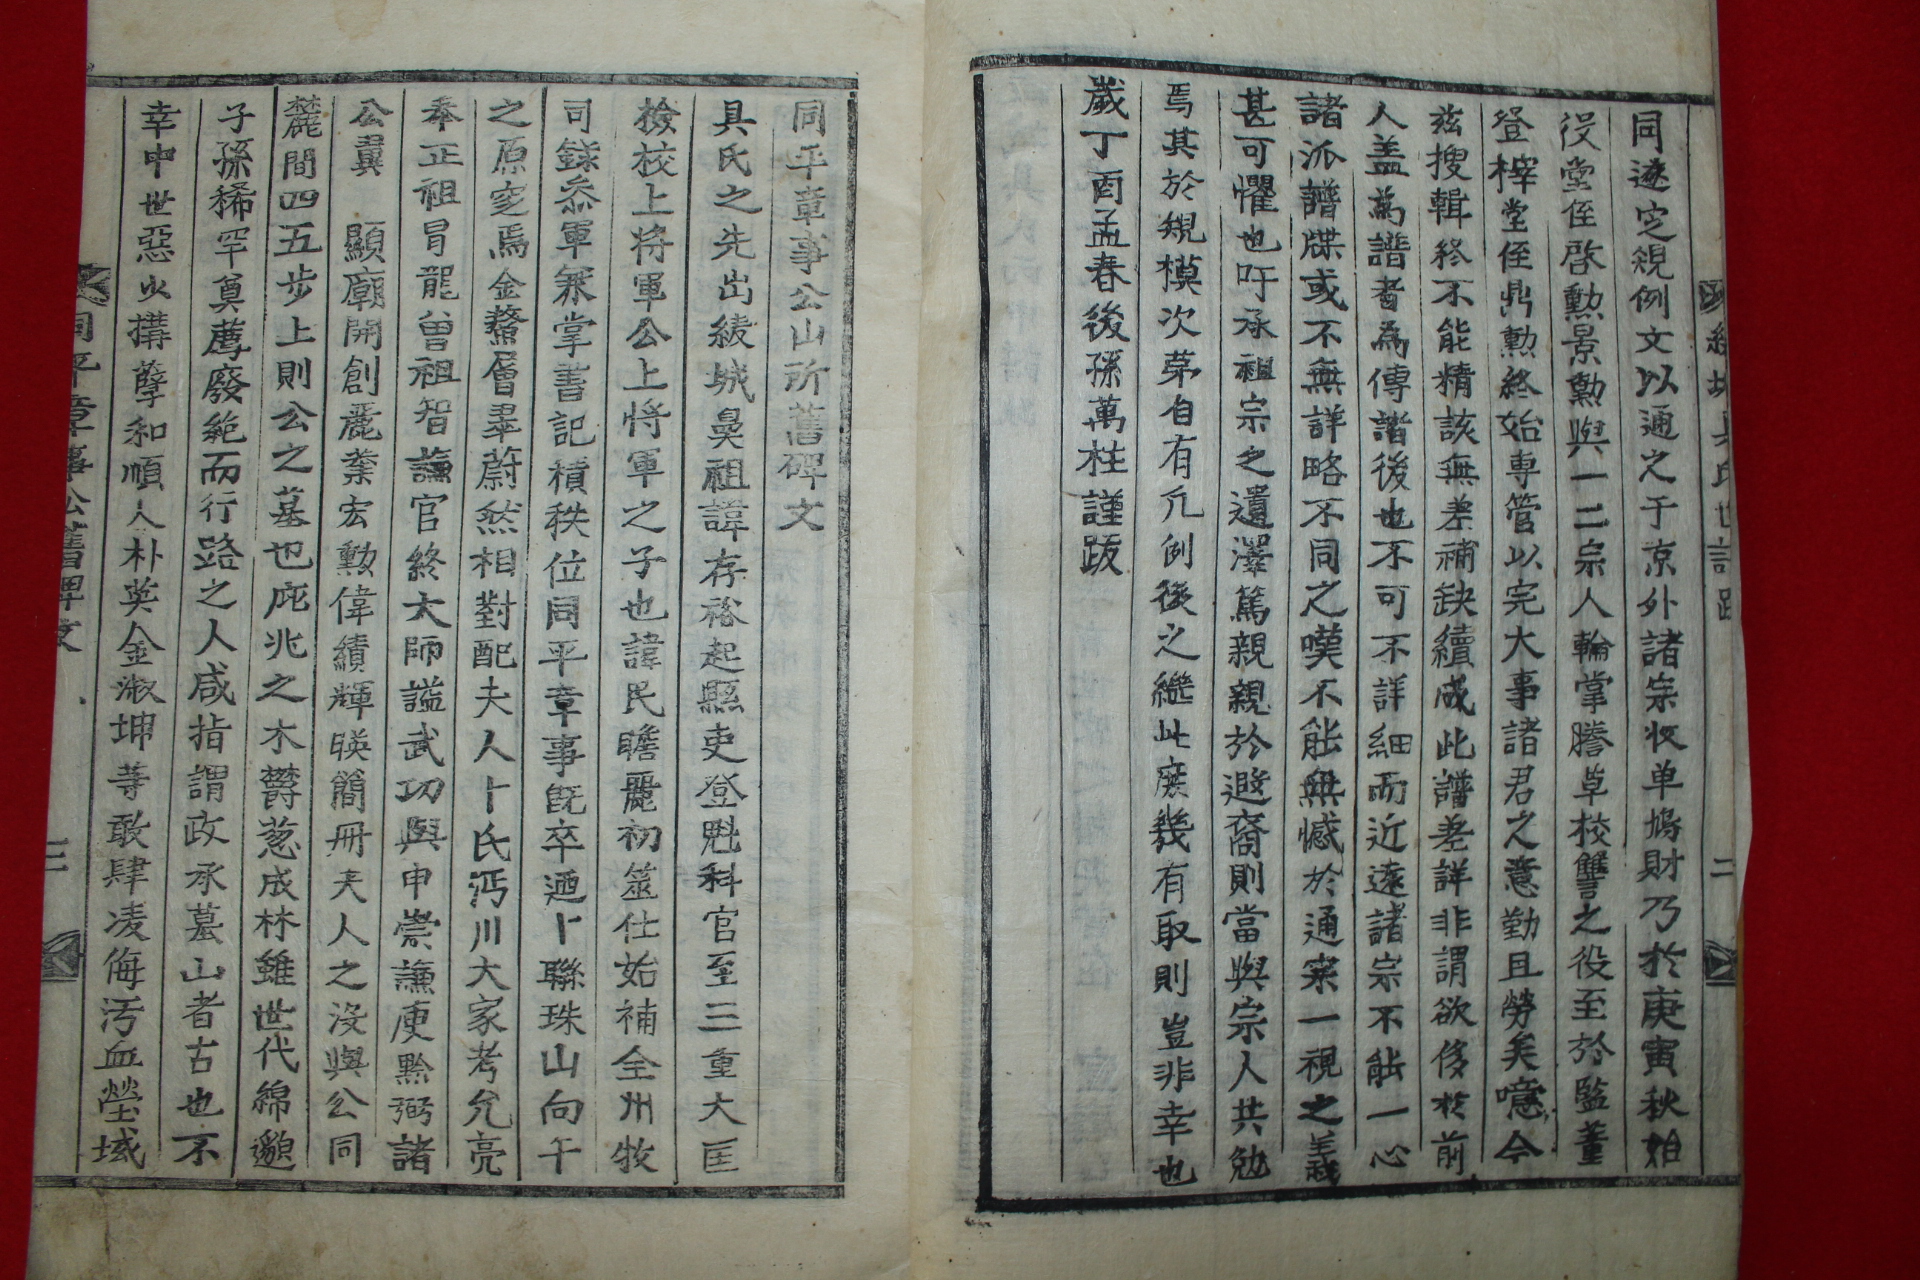 綾城具氏世譜跋 二
同遂定規例文以通之于京外諸宗收单鳩財乃於庚寅秋始
役堂侄啓勳景勳與一二宗人輪掌謄草校讐之役至於監董
登梓堂侄鼎勳終始専管以完大事諸君之意勤且勞矣噫今
玆搜輯終不能精該無差補缺續成此譜差詳非謂欲侈於前
人盖爲譜者為傳諸後也不可不詳細而近遠諸宗不能一心
諸派譜牒或不無詳略不同之嘆不能無憾於通宗一視之義
甚可懼也吁承祖宗之遺澤篤親親於遐裔則當與宗人共勉
焉其於規模次苐自有凡例後之繼此庶幾有取則豈非幸也
歲丁酉孟春後孫萬柱謹跋
同平章事公山所舊碑文
具氏之先出綾城鼻祖諱存裕起縣吏登魁科官至三重大匡
檢校上將軍公上將軍之子也諱民瞻麗初筮仕始補全州牧
司錄叅軍兼掌書記積秩位同平章事旣卒迺卜聯珠山向午
之原窆焉金鰲層巒蔚然相對配夫人卜氏沔川大家考允亮
奉正祖冐龍曾祖智謙官終太師謚武功與申崇謙庾黔弼諸
公翼 顯廟開創麗業宏勳偉績輝暎簡冊夫人之沒與公同
麓間四五步上則公之墓也庇兆之木欝葱成林雖世代綿邈
子孫稀罕奠薦廢絶而行路之人咸指謂政承墓山者古也不
幸中世惡少搆孽和順人朴英金淑坤等敢肆凌侮汚血塋域
同平章事公舊碑文 三